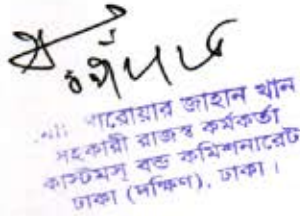 সারোয়ার জাহান খান
সহকারী রাজস্ব কর্মকর্তা
কাস্টমস্ বন্ড কমিশনারেট
ঢাকা (দক্ষিণ), ঢাকা।